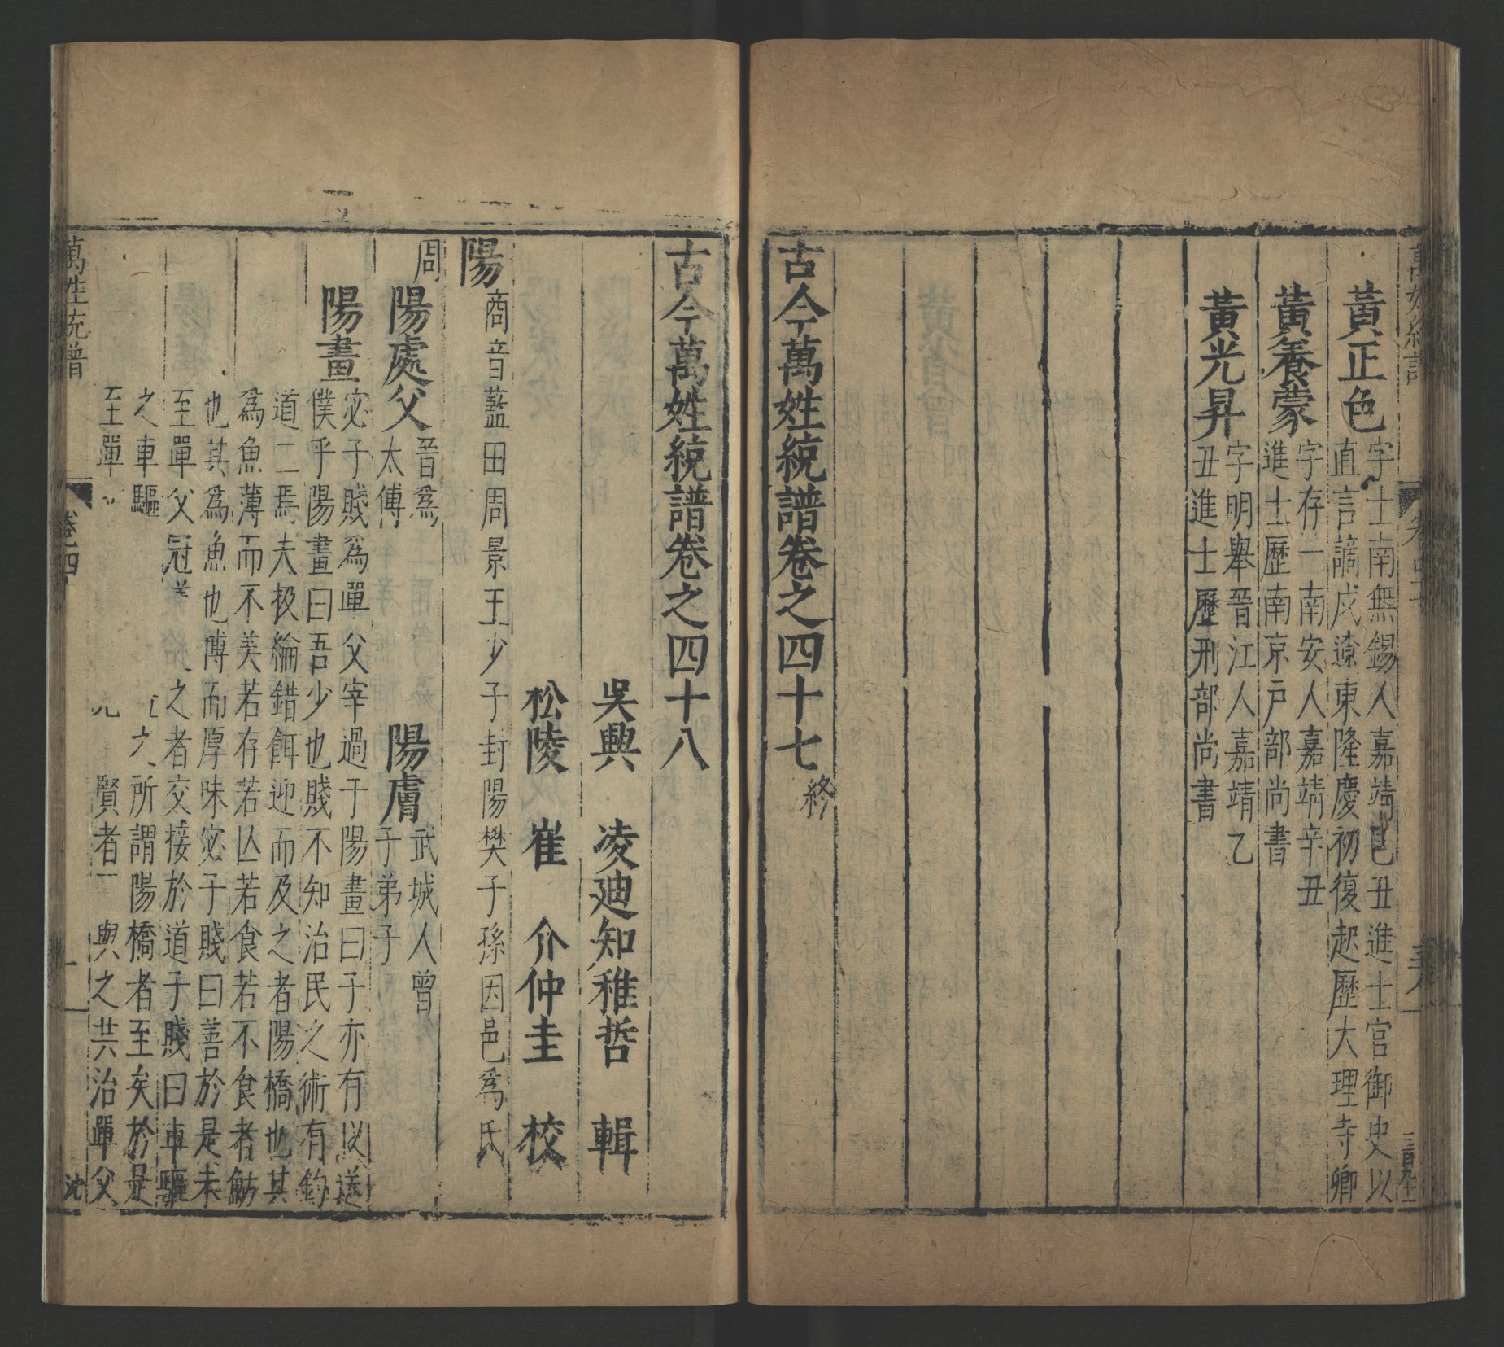 黃正色
字士南無錫人嘉靖己丑進士官御史以
直言謫戍遼東隆慶初復起歷大理寺卿
黃養蒙
字存一南安人嘉靖辛丑
進士歷南京戶部尚書
黃光昇
字明舉晉江人嘉靖乙
丑進士歷刑部尚書
古今萬姓統譜卷之四十七
終
古今萬姓統譜卷之四十八
吳興 凌廸知稚哲 輯
松陵 崔 介仲圭 校
陽
商音藍田周景王少子封陽樊子孫因邑爲氏
周
陽處父
晉爲
太傅
陽膚
武城人曾
子弟子
陽晝
宓子賤爲單父宰過于陽晝曰子亦有以送
僕乎陽晝曰吾少也賤不知治民之術有釣
道二焉夫扱綸錯餌迎而及之者陽橋也其
爲魚薄而不美若存若亾若食若不食者魴
也其爲魚也博而厚味宓子賤曰善於是未
至單父冠蓋 之者交接於道子賤曰車驅
之車驅 之所謂陽橋者至矣於是
至單 賢者 與之共治單父
萬姓統譜
卷四
一
沈